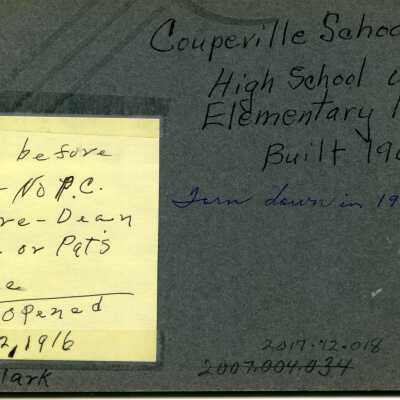 Coupeville Schoo
High School
Elementary
Built 190
Torn down in 19
before
- No P.C.
re - Dean
. or Pat's
e
opened
2, 1916
lark
2017.12.018
2007.004.034